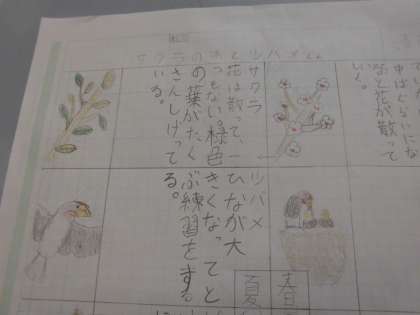 サクラの木とツバメ
中ばぐらいにな
ると花が散って
いく。
サクラ
花は散って、一
つもない。緑色
の葉がたく
さんしげって
いる。
ツバメ
ひなが大
きくなってと
ぶ練習をする。
春
夏